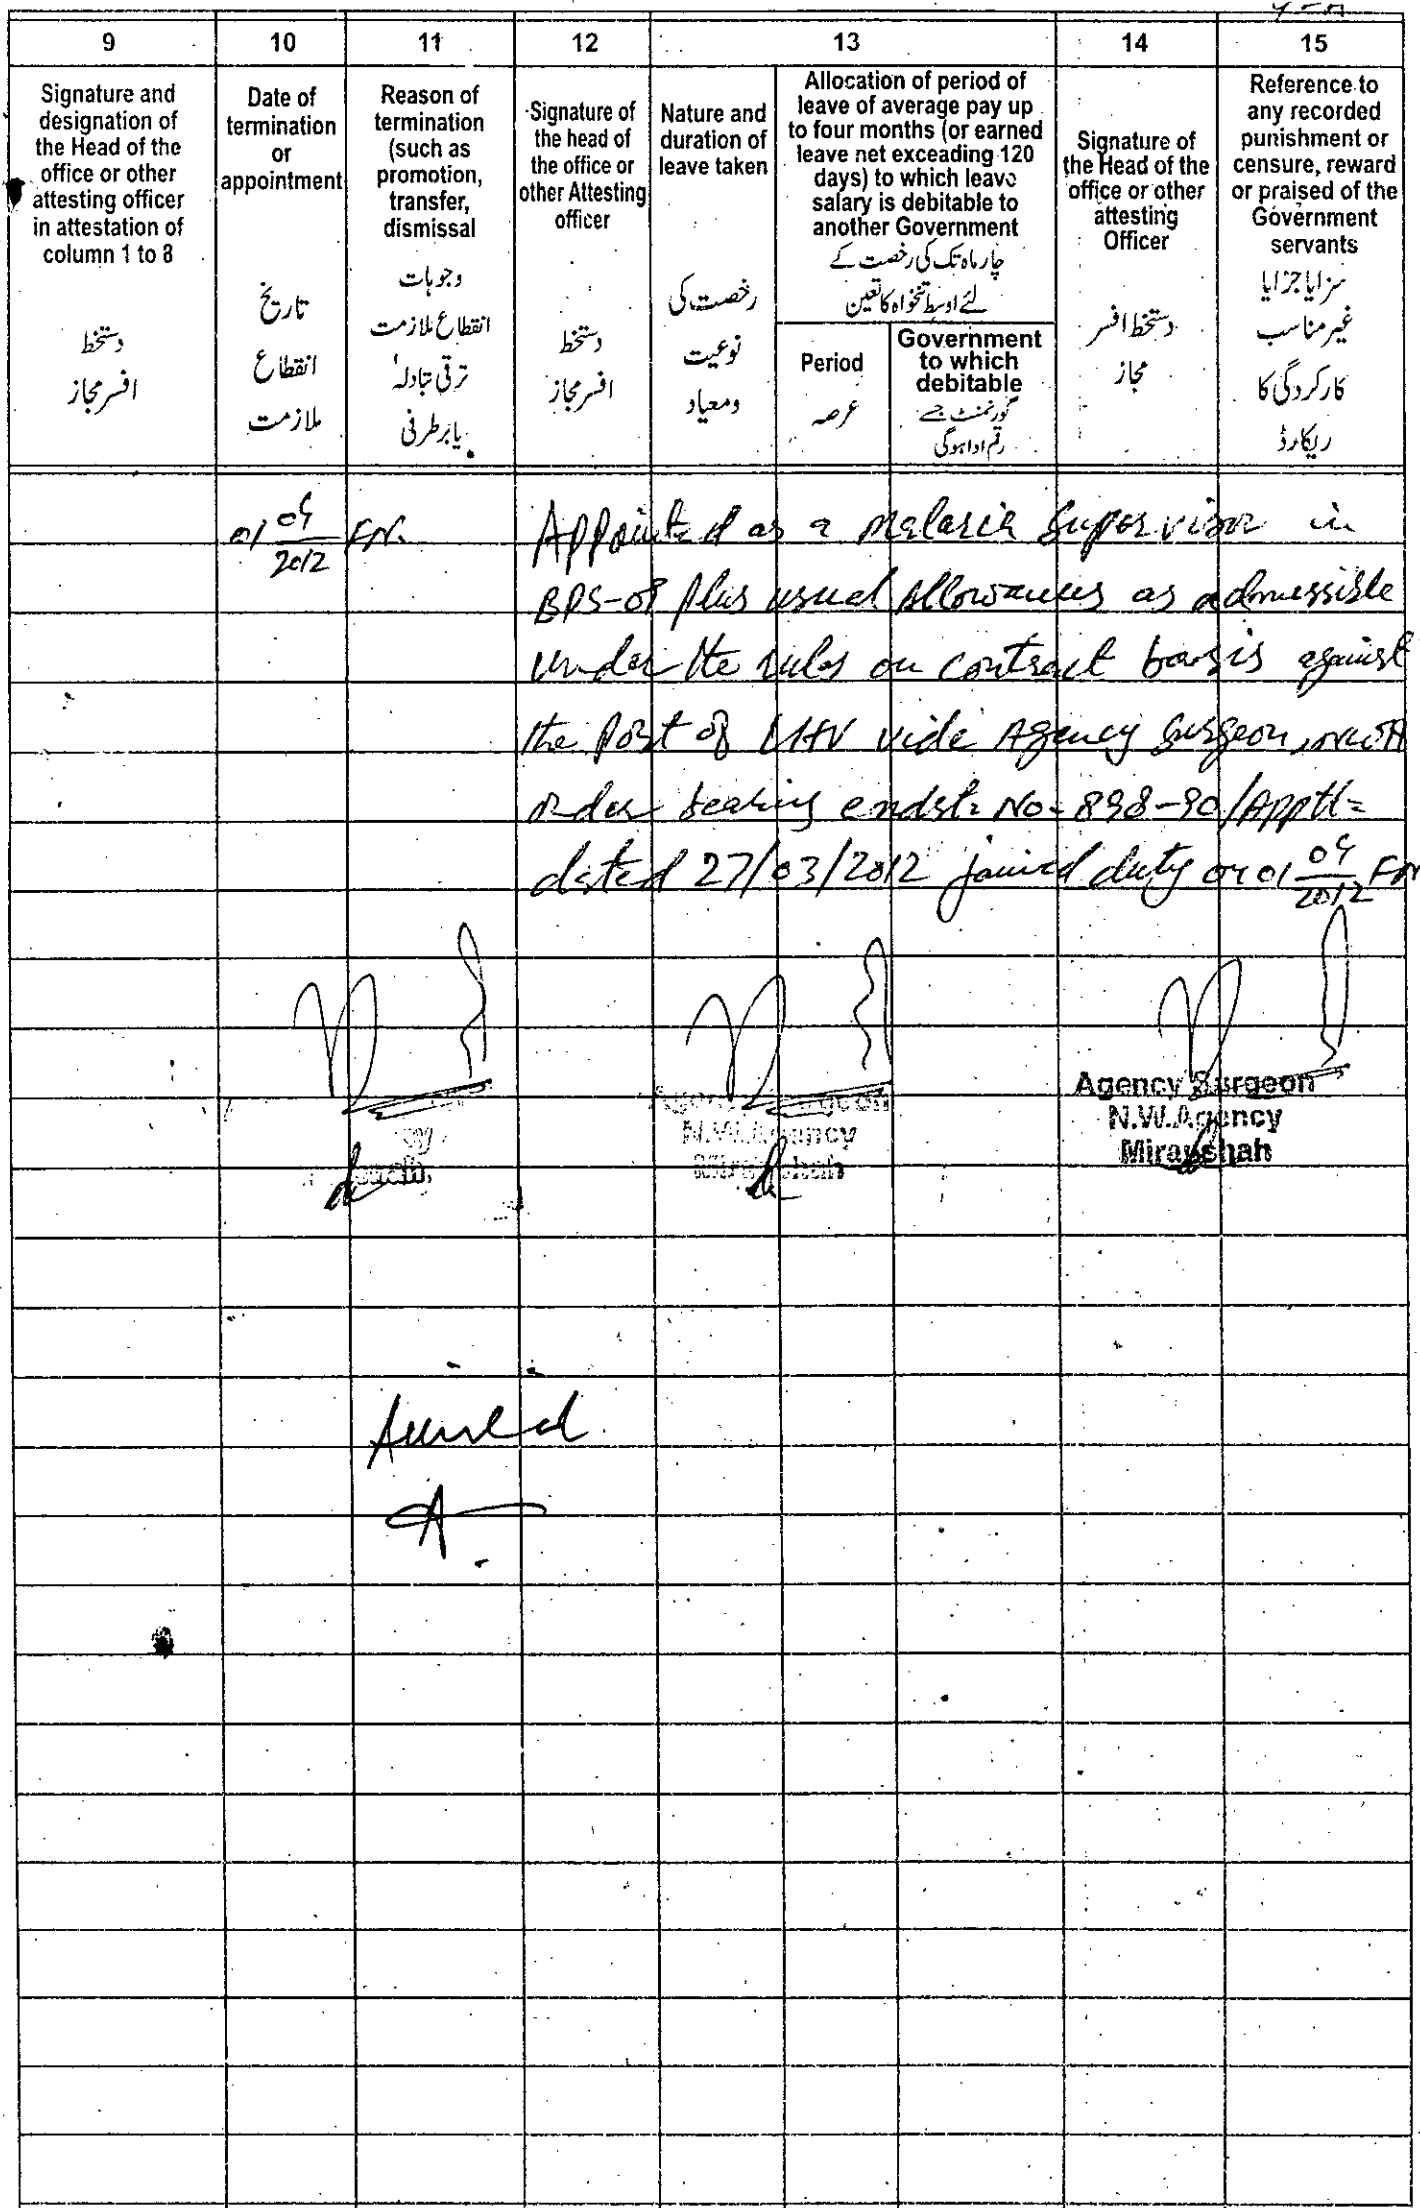 9 10 11 12 13 14 15
Signature and
designation of
the Head of the
office or other
attesting officer
in attestation of
column 1 to 8
دستخط
افسر مجاز
Date of
termination
or
appointment
تاریخ
انقطاع
ملازمت
Reason of
termination
(such as
promotion,
transfer,
dismissal
وجوہات
انقطاع ملازمت
ترقی تبادلہ
یا برطرفی
Signature of
the head of
the office or
other Attesting
officer
دستخط
افسر مجاز
Nature and
duration of
leave taken
رخصت کی
نوعیت
ومعیاد
Allocation of period of
leave of average pay up
to four months (or earned
leave net exceading 120
days) to which leave
salary is debitable to
another Government
چار ماہ تک کی رخصت کے
لئے اوسط تنخواہ کا تعین
Period
عرصہ
Government
to which
debitable
گورنمنٹ جسے
رقم ادا ہوگی
Signature of
the Head of the
office or other
attesting
Officer
دستخط افسر
مجاز
Reference to
any recorded
punishment or
censure, reward
or praised of the
Government
servants
سزا یا جزا یا
غیر مناسب
کارکردگی کا
ریکارڈ
01 04/2012 F.N. Appointed as a malaria Supervisor in
BPS-08 plus usual Allowances as admissible
under the rules on contract basis against
the post of LHV vide Agency Surgeon,
order bearing endst: No= 898-90/Apptt=
dated 27/03/2012 joined duty on 01 04/2012 FN
Agency Surgeon
N.W.Agency
Miranshah
Agency Surgeon
N.W.Agency
Miranshah